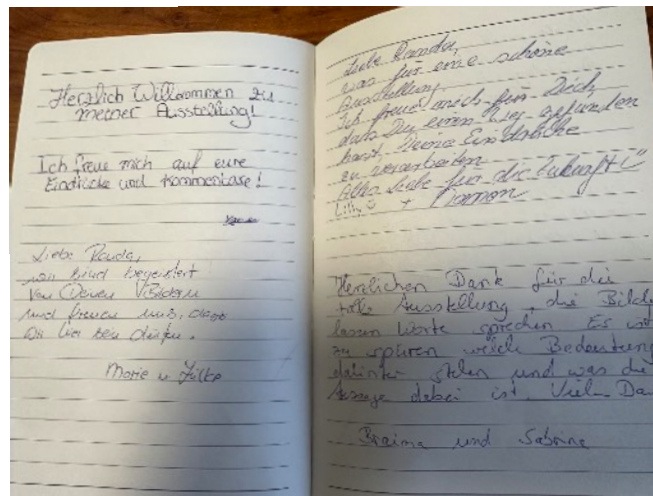 Herzlich Willkommen zu
meiner Ausstellung!
Ich freue mich auf eure
Eindrücke und Kommentare!
Liebe Randa,
wir sind begeistert
von Deinen Bildern
und freuen uns, dass
wir hier sein dürfen.
Marie u. Silke
Liebe Randa,
was für eine schöne
Ausstellung
Ich freue mich für Dich,
dass Du einen Weg gefunden
hast, Deine Eindrücke
zu verarbeiten
Alles Liebe für die Zukunft
Lilly +
Herzlichen Dank für die
tolle Ausstellung, die Bilder
lassen Worte sprechen Es ist
zu spüren welch Bedeutung
dahinter stehen und was die
Aussage dabei ist. Vielen Da
und Sabrine